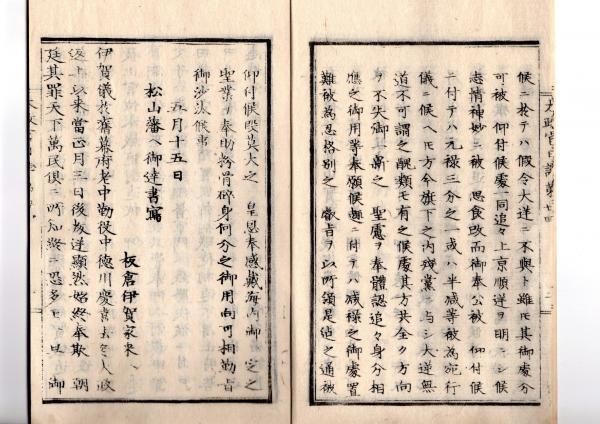 候ニ於テハ假令大逆ニ不與ト雖モ其御處分
可被 仰付候處一同追々上京順逆ヲ明ニシ候
志情神妙ニ被 思食改而御奉公被 仰付候
ニ付テハ元禄三分之一或ハ半減等被為宛行
儀ニ候ヘ𪜈方今旗下之内殘黨ニ与シ大逆無
道不可謂之醜類モ有之候處其方共全ク方向
ヲ不失御 高之 聖慮ヲ奉體認追々身分相
應之御用等奉願候趣ニ付テハ減禄之御處置
難被為忍格別之 叡旨ヲ以所領是迠之通被
仰付候段莫大之 皇恩奉感戴海内御一定之
聖業ヲ奉助粉骨碎身何分之御用向可相勤旨
御沙汰候事
五月十五日
松山藩ヘ御達書寫
板倉伊賀家来ヘ
伊賀儀於舊幕府老中勤役中德川慶喜去冬大政
返上以来當正月三日後叛逆顯然始終奉欺 朝
廷其罪天下萬民俱ニ所知終ニ恐多モ 御